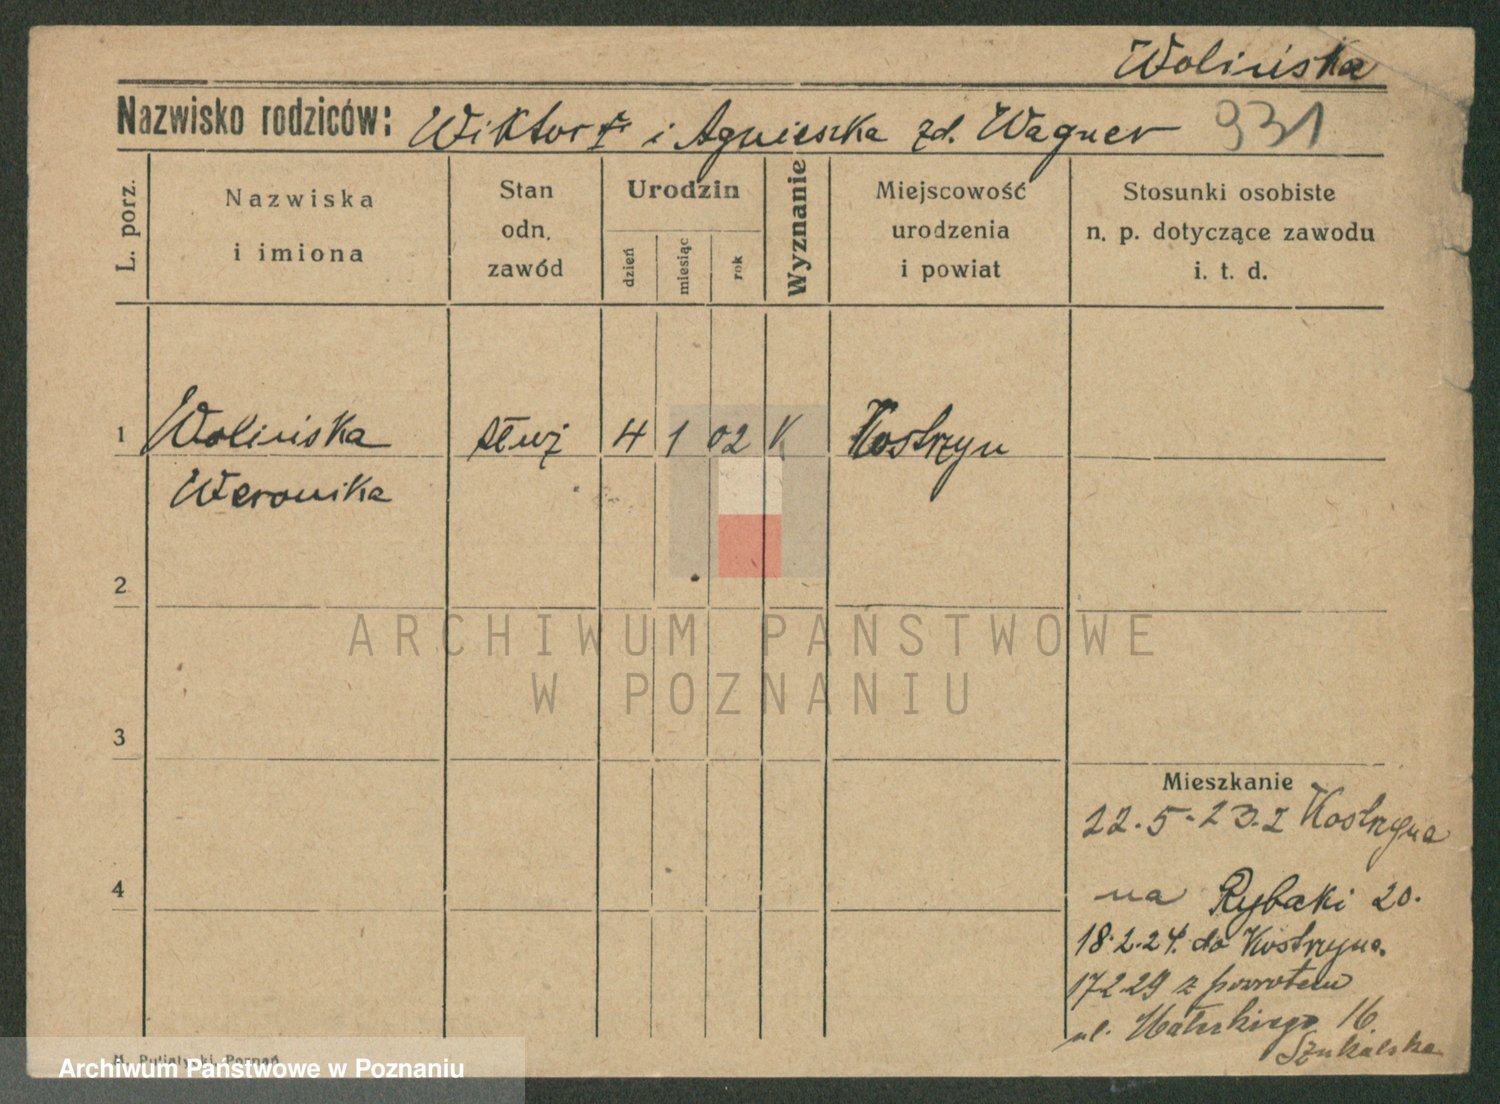 Wolińska
Nazwisko rodziców: Wiktor i Agnieszka zd. Wagner 931
L. porz.
Nazwiska
i imiona
Stan
odn.
zawód
Urodzin
dzień
miesiąc
rok
Wyznanie
Miejscowość
urodzenia
i powiat
Stosunki osobiste
n. p. dotyczące zawodu
i. t. d.
1 Wolińska służ 4 1 02 K Kostrzyn
Weronika
2
ARCHIWUM PAŃSTWOWE
W POZNANIU
3
Mieszkanie
22.5.23. z Kostrzyna
4
na Rybaki 20.
18.2.24. do Kostrzyna.
17 2 29 z powrotem
ul. 16.
Szukalska
Poznań
Archiwum Państwowe w Poznaniu